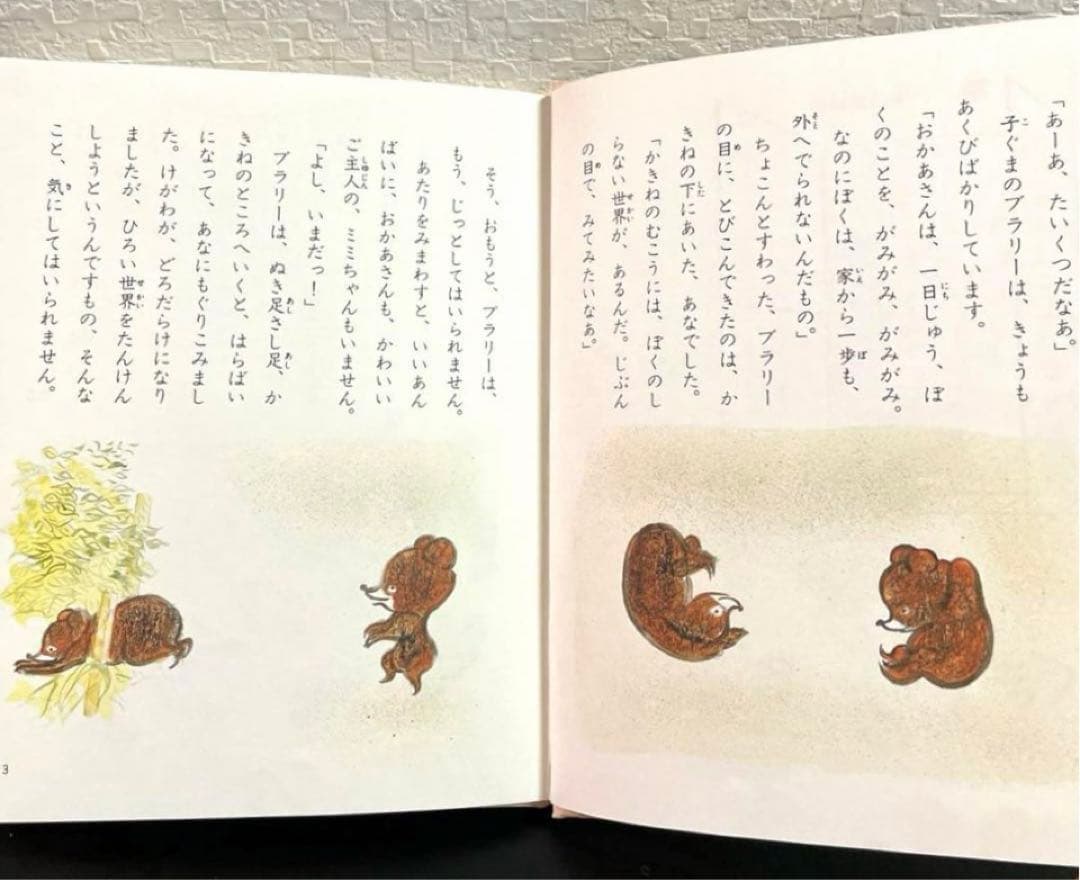 「あーあ、たいくつだなあ。」
子ぐまのブラリーは、きょうも
あくびばかりしています。
「おかあさんは、一日じゅう、ぼ
くのことを、がみがみ、がみがみ。
なのにぼくは、家から一歩も、
外へでられないんだもの。」
ちょこんとすわった、ブラリー
の目に、とびこんできたのは、か
きねの下にあいた、あなでした。
「かきねのむこうには、ぼくのし
らない世界が、あるんだ。じぶん
の目で、みてみたいなあ。」
そう、おもうと、ブラリーは、
もう、じっとしてはいられません。
あたりをみまわすと、いいあん
ばいに、おかあさんも、かわいい
ご主人の、ミミちゃんもいません。
「よし、いまだっ！」
ブラリーは、ぬき足さし足、か
きねのところへいくと、はらばい
になって、あなにもぐりこみまし
た。けがわが、どろだらけになり
ましたが、ひろい世界をたんけん
しようというんですもの、そんな
こと、気にしてはいられません。
3